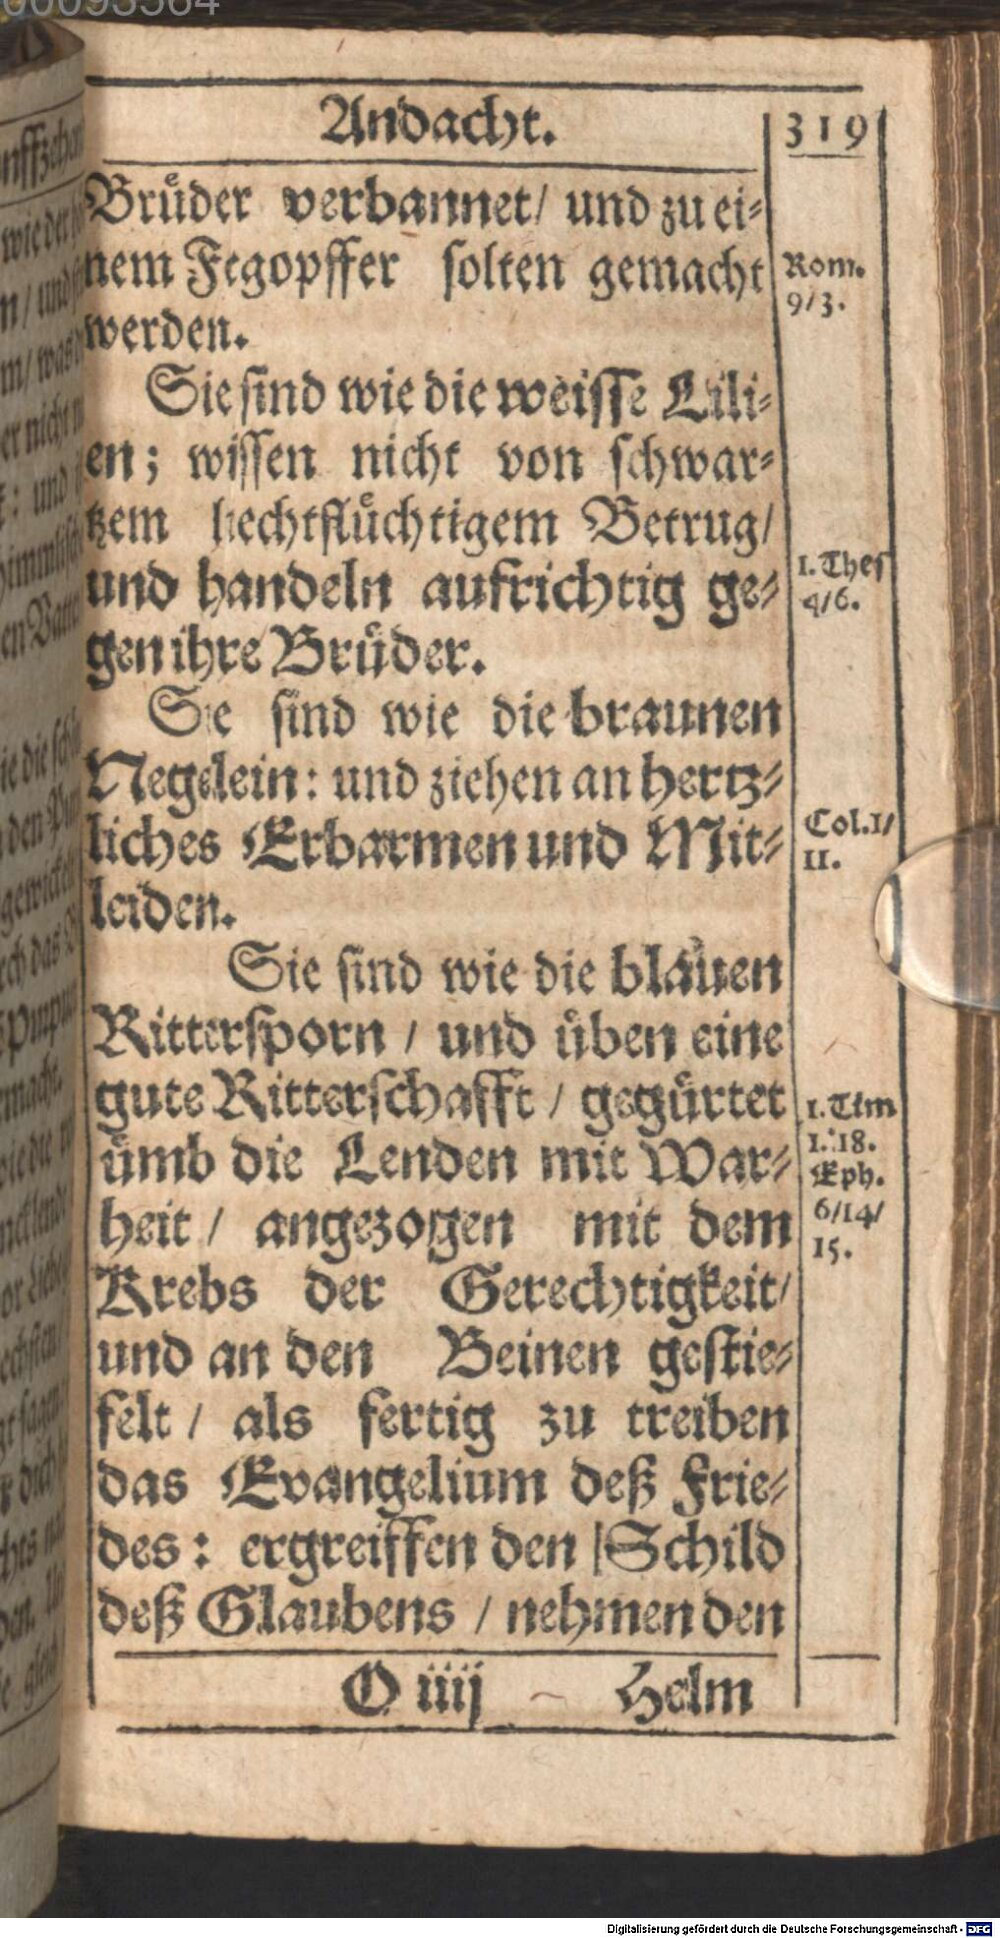 00093564
Andacht.
319
Bruͤder verbannet/ und zu ei⸗
nem Fegopffer solten gemacht
werden.
Rom.
9/3.
Sie sind wie die weisse Lili⸗
en; wissen nicht von schwar⸗
tzem liechtfluͤchtigem Betrug/
und handeln aufrichtig ge⸗
gen ihre Bruͤder.
1. Thes
4/6.
Sie sind wie die braunen
Negelein: und ziehen an hertz⸗
liches Erbarmen und Mit⸗
leiden.
Col.1/
11.
Sie sind wie die blauen
Rittersporn / und uͤben eine
gute Ritterschafft / geguͤrtet
uͤmb die Lenden mit War⸗
heit / angezogen mit dem
Krebs der Gerechtigkeit/
und an den Beinen gestie⸗
felt / als fertig zu treiben
das Evangelium deß Frie⸗
des: ergreiffen den Schild
deß Glaubens / nehmen den
1. Tim
1.:18.
Eph.
6/14/
15.
O iiij Helm
Digitalisierung gefördert durch die Deutsche Forschungsgemeinschaft - DFG